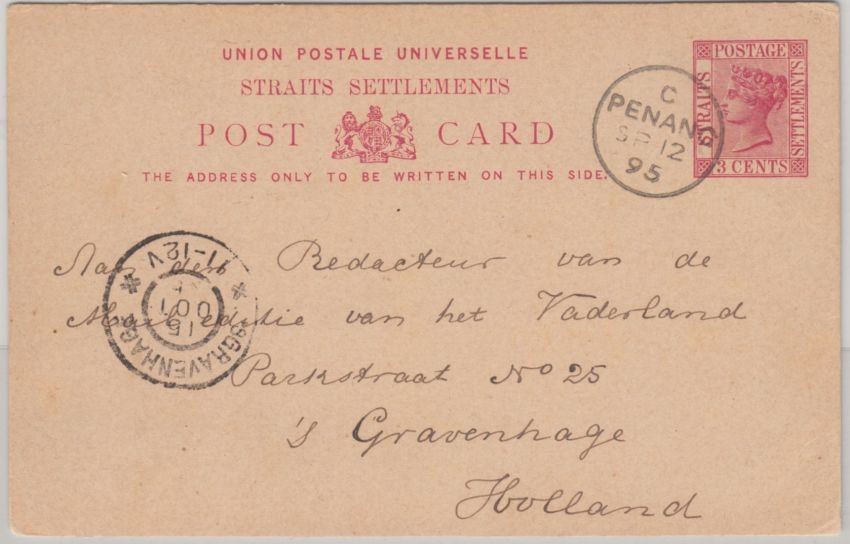 UNION POSTALE UNIVERSELLE
STRAITS SETTLEMENTS
POST CARD
THE ADDRESS ONLY TO BE WRITTEN ON THIS SIDE.
POSTAGE
STRAITS
SETTLEMENTS
3 CENTS
C
PENANG
SP 12
95
Aan den Redacteur van de
Mail editie van het Vaderland
Parkstraat No 25
's Gravenhage
Holland
'SGRAVENHAGE
15
OCT
11-12V